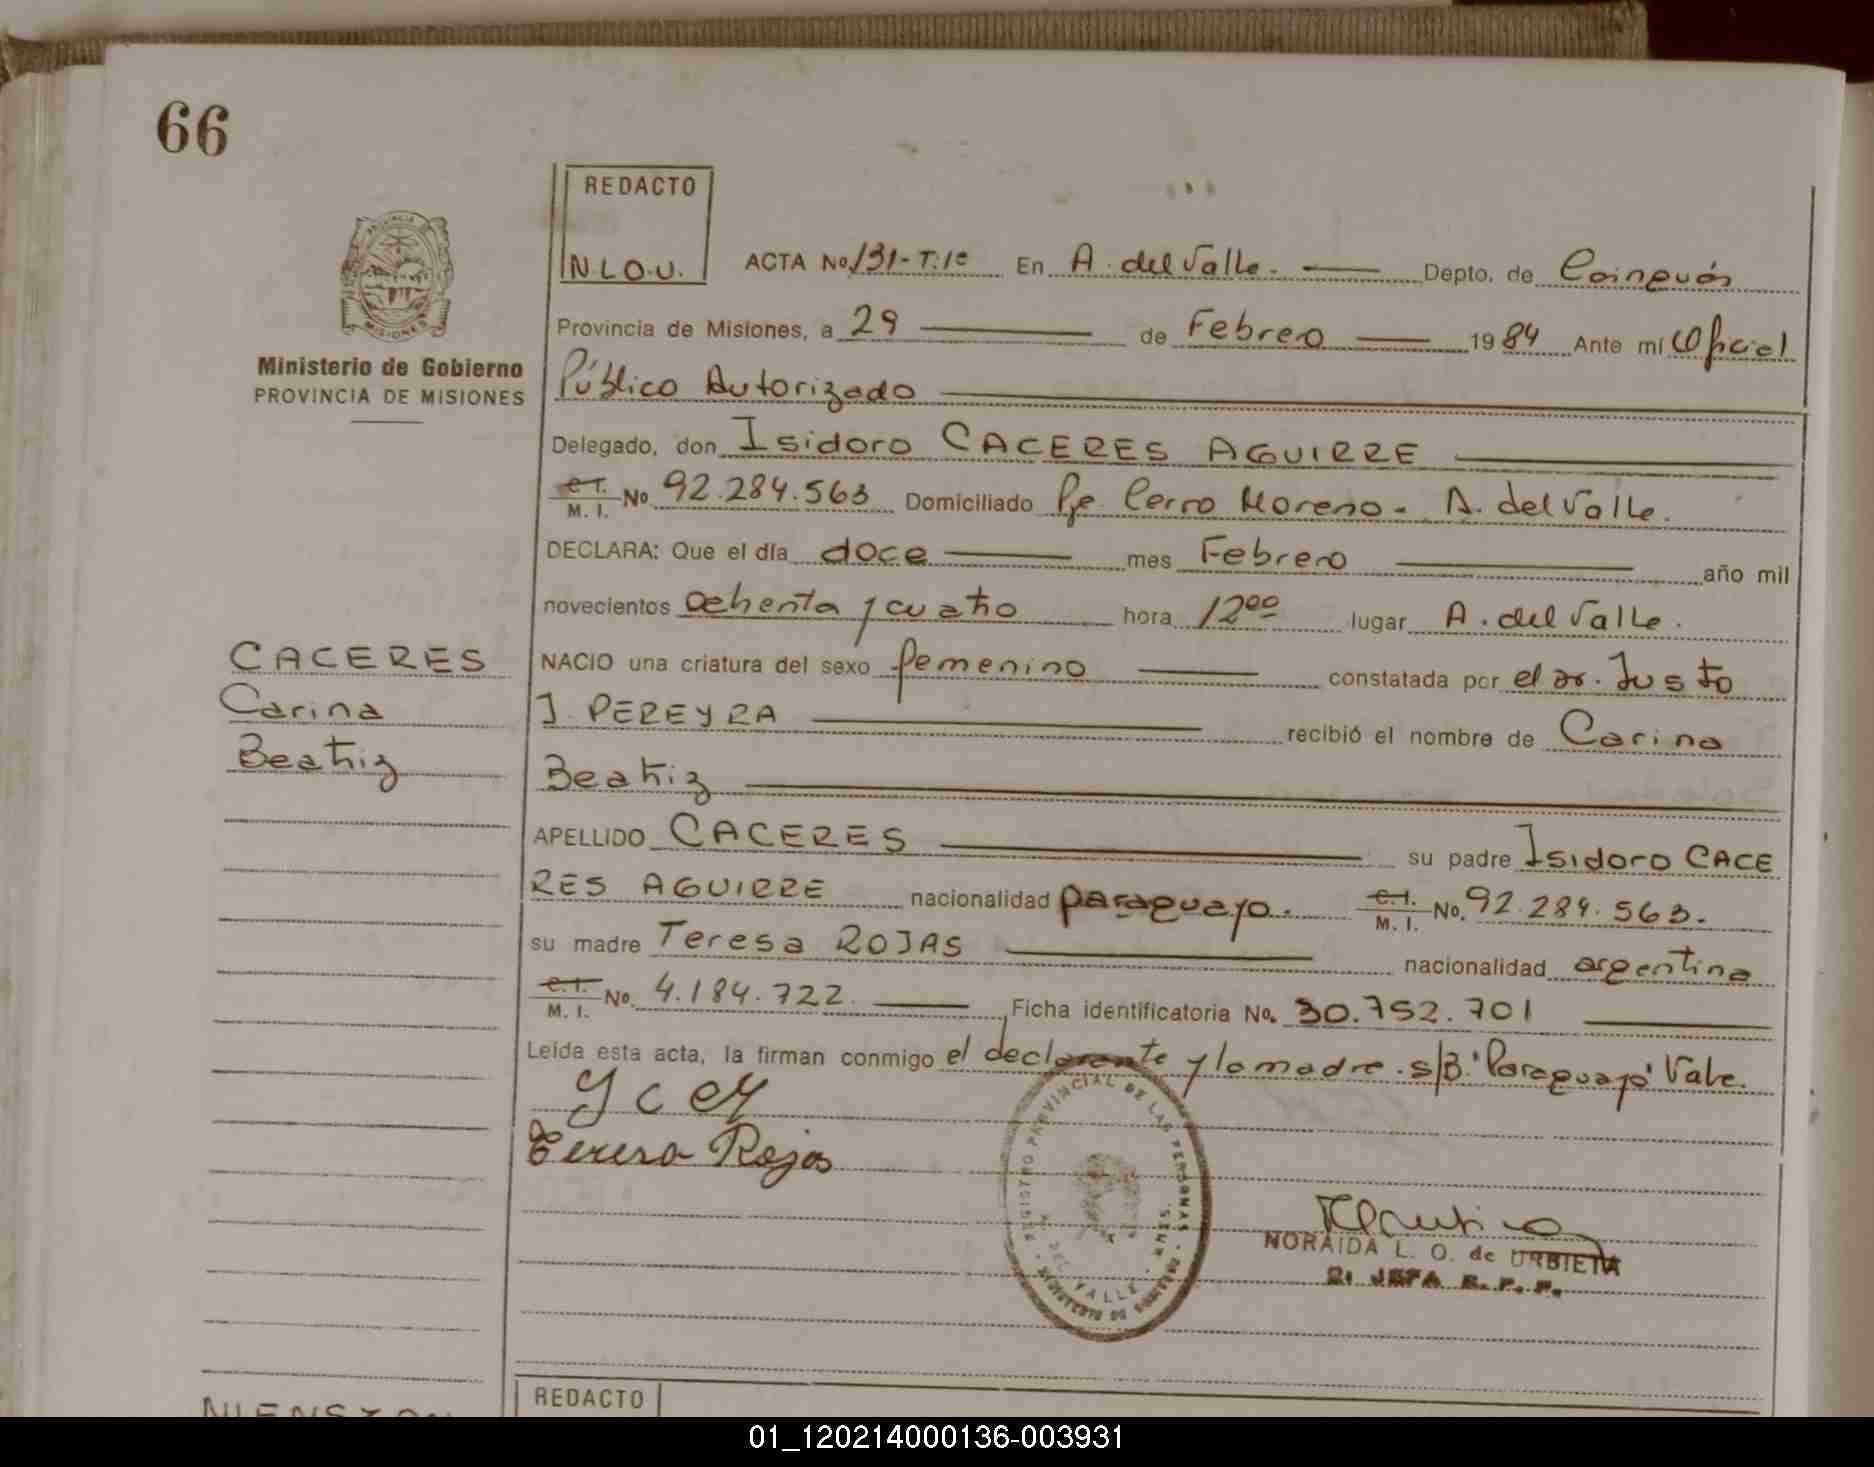 66
REDACTO
N.L.O.U.
ACTA No 131-T.1º En A. del Valle. Depto. de Cainguás
Provincia de Misiones, a 29 de Febrero 1984 Ante mi Oficial
Público Autorizado
Ministerio de Gobierno
PROVINCIA DE MISIONES
Delegado, don Isidoro CACERES AGUIRRE
C.I. M. I. No. 92.284.563 Domiciliado Pje. Cerro Moreno - A. del Valle.
DECLARA: Que el día doce mes Febrero año mil
novecientos ochenta y cuatro hora 12ºº lugar A. del Valle.
NACIO una criatura del sexo femenino constatada por el Dr. Justo
J. PEREYRA recibió el nombre de Carina
Beatriz
CACERES
Carina
Beatriz
APELLIDO CACERES su padre Isidoro CACE
RES AGUIRRE nacionalidad paraguayo. C.I. M. I. No. 92.284.563.
su madre Teresa ROJAS nacionalidad argentina
C.I. M. I. No. 4.184.722. Ficha identificatoria No. 30.752.701
Leída esta acta, la firman conmigo el declarante y la madre. s/B. "Paraguayo" Vale.
Teresa Rojas
REGISTRO PROVINCIAL DE LAS PERSONAS
DEL VALLE
MINISTERIO DE GOBIERNO
NORAIDA L. O. de URBIETA
JEFA R. P. P.
REDACTO
01_120214000136-003931